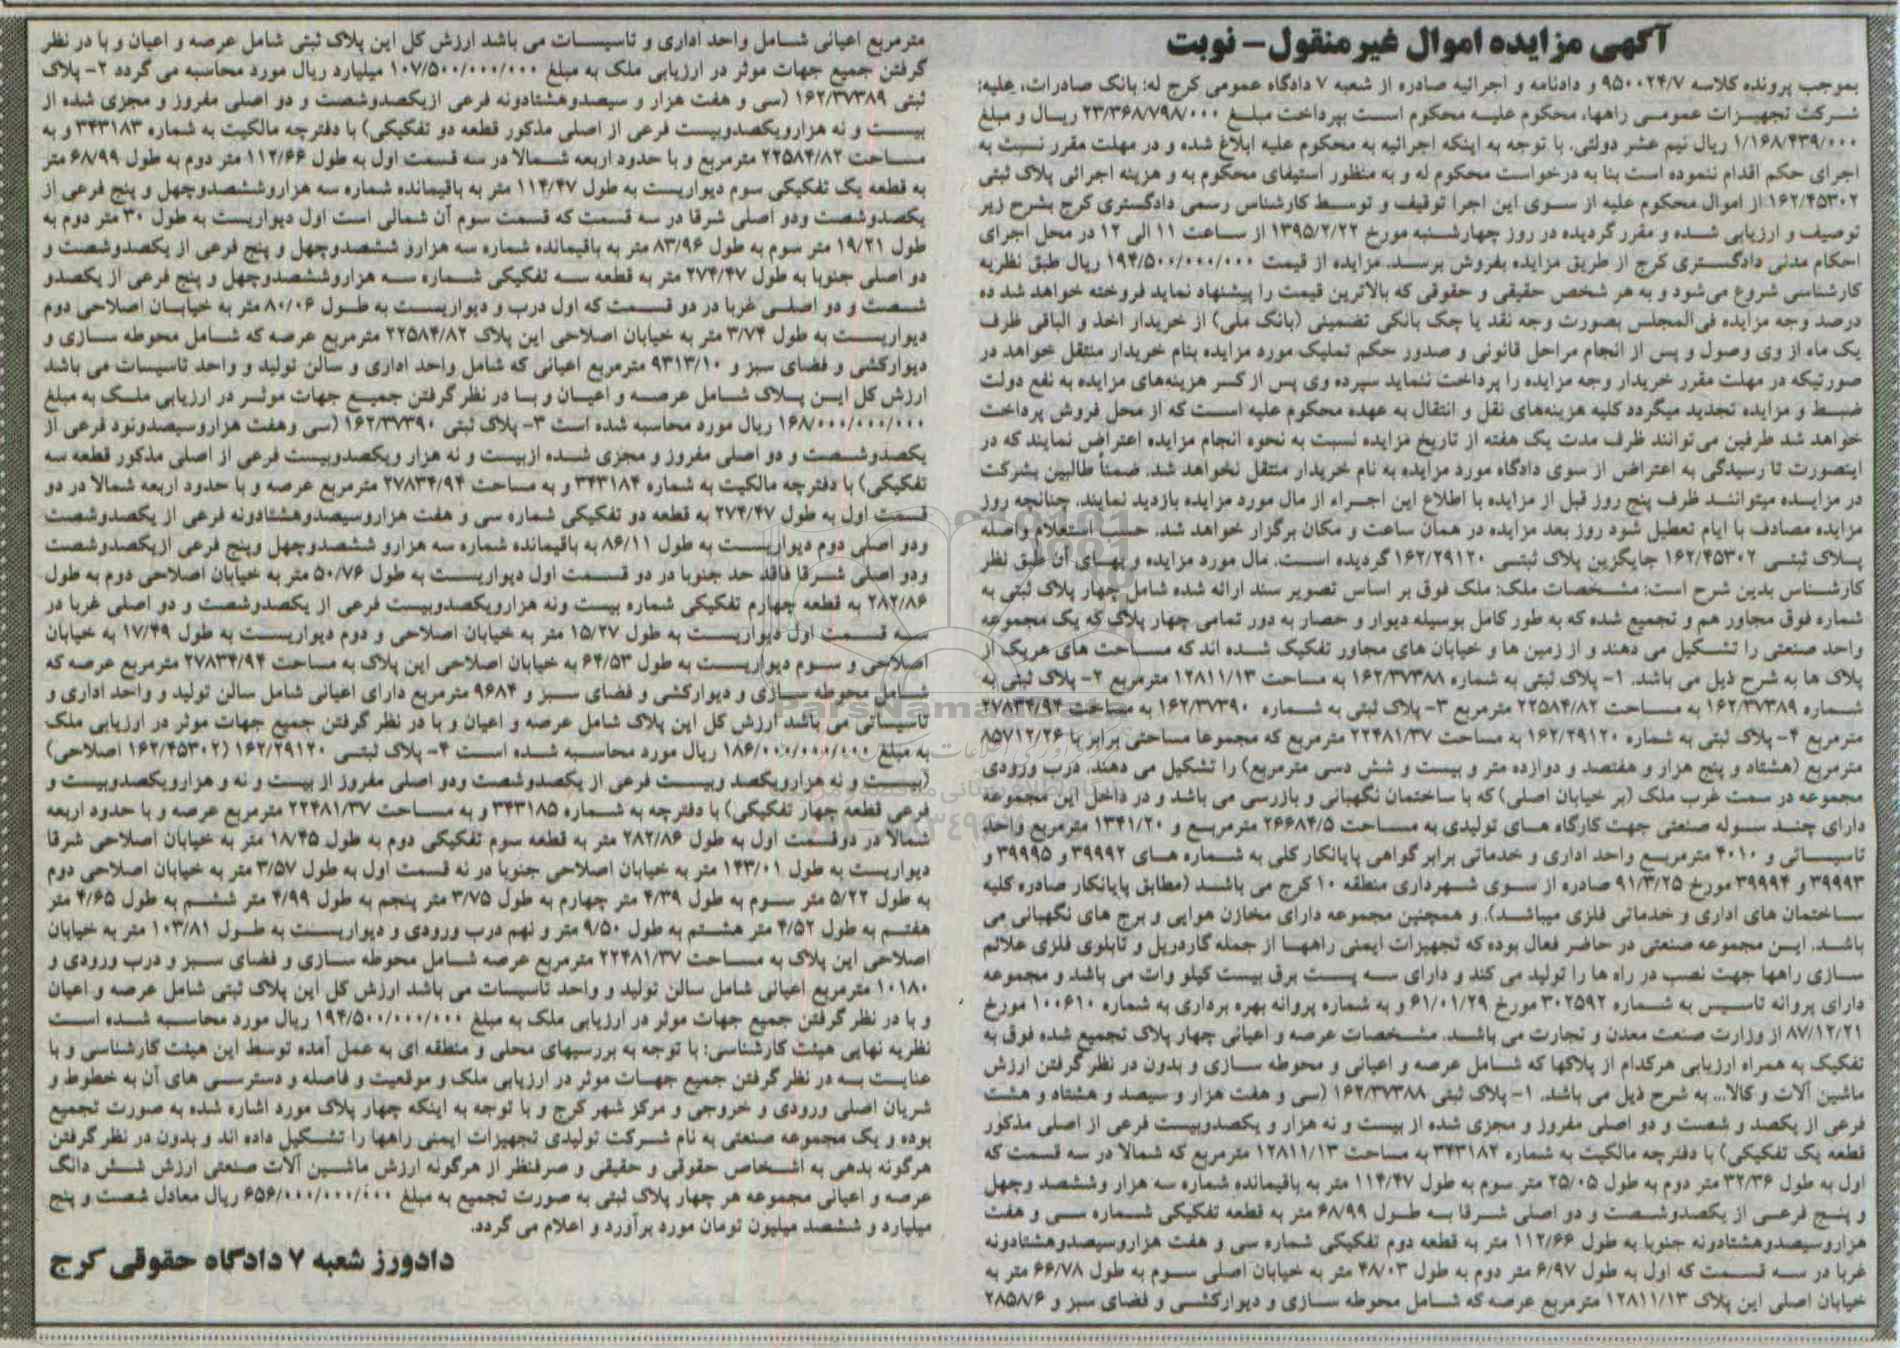 آگهی مزایده اموال غیرمنقول- نوبت
بموجب پرونده کلاسه ۹۵۰۰۲۴/۷ و دادنامه و اجرائیه صادره از شعبه ۷ دادگاه عمومی کرج له: بانک صادرات، علیه:
شرکت تجهیزات عمومی راهها، محکوم علیه محکوم است بپرداخت مبلغ ۲۳/۳۶۸/۷۹۸/۰۰۰ ریال و مبلغ
۱/۱۶۸/۴۳۹/۰۰۰ ریال نیم عشر دولتی. با توجه به اینکه اجرائیه به محکوم علیه ابلاغ شده و در مهلت مقرر نسبت به
اجرای حکم اقدام ننموده است بنا به درخواست محکوم له و به منظور استیفای محکوم به و هزینه اجرائی پلاک ثبتی
۱۶۲/۴۵۳۰۲ از اموال محکوم علیه از سوی این اجرا توقیف و توسط کارشناس رسمی دادگستری کرج بشرح زیر
توصیف و ارزیابی شده و مقرر گردیده در روز چهارشنبه مورخ ۱۳۹۵/۲/۲۲ از ساعت ۱۱ الی ۱۲ در محل اجرای
احکام مدنی دادگستری کرج از طریق مزایده بفروش برسد. مزایده از قیمت ۱۹۴/۵۰۰/۰۰۰/۰۰۰ ریال طبق نظریه
کارشناسی شروع می‌شود و به هر شخص حقیقی و حقوقی که بالاترین قیمت را پیشنهاد نماید فروخته خواهد شد ده
درصد وجه مزایده فی‌المجلس بصورت وجه نقد یا چک بانکی تضمینی (بانک ملی) از خریدار اخذ و الباقی ظرف
یک ماه از وی وصول و پس از انجام مراحل قانونی و صدور حکم تملیک مورد مزایده بنام خریدار منتقل خواهد در
صورتیکه در مهلت مقرر خریدار وجه مزایده را پرداخت ننماید سپرده وی پس از کسر هزینه‌های مزایده به نفع دولت
ضبط و مزایده تجدید میگردد کلیه هزینه‌های نقل و انتقال به عهده محکوم علیه است که از محل فروش پرداخت
خواهد شد طرفین می‌توانند ظرف مدت یک هفته از تاریخ مزایده نسبت به نحوه انجام مزایده اعتراض نمایند که در
اینصورت تا رسیدگی به اعتراض از سوی دادگاه مورد مزایده به نام خریدار منتقل نخواهد شد. ضمناً طالبین بشرکت
در مزایده میتوانند ظرف پنج روز قبل از مزایده با اطلاع این اجراء از مال مورد مزایده بازدید نمایند. چنانچه روز
مزایده مصادف با ایام تعطیل شود روز بعد مزایده در همان ساعت و مکان برگزار خواهد شد. حسب استعلام واصله
پلاک ثبتی ۱۶۲/۴۵۳۰۲ جایگزین پلاک ثبتی ۱۶۲/۲۹۱۲۰ گردیده است. مال مورد مزایده و بهای آن طبق نظر
کارشناس بدین شرح است: مشخصات ملک: ملک فوق بر اساس تصویر سند ارائه شده شامل چهار پلاک ثبتی به
شماره فوق مجاور هم و تجمیع شده که به طور کامل بوسیله دیوار و حصار به دور تمامی چهار پلاک که یک مجموعه
واحد صنعتی را تشکیل می دهند و از زمین ها و خیابان های مجاور تفکیک شده اند که مساحت های هریک از
پلاک ها به شرح ذیل می باشد. ۱- پلاک ثبتی به شماره ۱۶۲/۳۷۳۸۸ به مساحت ۱۲۸۱۱/۱۳ مترمربع ۲- پلاک ثبتی به
شماره ۱۶۲/۳۷۳۸۹ به مساحت ۲۲۵۸۴/۸۲ مترمربع ۳- پلاک ثبتی به شماره ۱۶۲/۳۷۳۹۰ به مساحت ۲۷۸۳۴/۹۴
مترمربع ۴- پلاک ثبتی به شماره ۱۶۲/۲۹۱۲۰ به مساحت ۲۲۴۸۱/۳۷ مترمربع که مجموعا مساحتی برابر با ۸۵۷۱۲/۲۶
مترمربع (هشتاد و پنج هزار و هفتصد و دوازده متر و بیست و شش دسی مترمربع) را تشکیل می دهند. درب ورودی
مجموعه در سمت غرب ملک (بر خیابان اصلی) که با ساختمان نگهبانی و بازرسی می باشد و در داخل این مجموعه
دارای چند سوله صنعتی جهت کارگاه های تولیدی به مساحت ۲۶۶۸۴/۵ مترمربع و ۱۳۴۱/۲۰ مترمربع واحد
تاسیساتی و ۴۰۱۰ مترمربع واحد اداری و خدماتی برابر گواهی پایانکار کلی به شماره های ۳۹۹۹۲ و ۳۹۹۹۵ و
۳۹۹۹۳ و ۳۹۹۹۴ مورخ ۹۱/۳/۲۵ صادره از سوی شهرداری منطقه ۱۰ کرج می باشد (مطابق پایانکار صادره کلیه
ساختمان های اداری و خدماتی فلزی میباشد). و همچنین مجموعه دارای مخازن هوایی و برج های نگهبانی می
باشد. این مجموعه صنعتی در حاضر فعال بوده که تجهیزات ایمنی راهها از جمله گاردریل و تابلوی فلزی علائم
سازی راهها جهت نصب در راه ها را تولید می کند و دارای سه پست برق بیست کیلو وات می باشد و مجموعه
دارای پروانه تاسیس به شماره ۳۰۲۵۹۲ مورخ ۶۱/۰۱/۲۹ و به شماره پروانه بهره برداری به شماره ۱۰۰۶۱۰ مورخ
۸۷/۱۲/۲۱ از وزارت صنعت معدن و تجارت می باشد. مشخصات عرصه و اعیانی چهار پلاک تجمیع شده فوق به
تفکیک به همراه ارزیابی هرکدام از پلاکها که شامل عرصه و اعیانی و محوطه سازی و بدون در نظر گرفتن ارزش
ماشین آلات و کالا... به شرح ذیل می باشد. ۱- پلاک ثبتی ۱۶۲/۳۷۳۸۸ (سی و هفت هزار و سیصد و هشتاد و هشت
فرعی از یکصد و شصت و دو اصلی مفروز و مجزی شده از بیست و نه هزار و یکصدوبیست فرعی از اصلی مذکور
قطعه یک تفکیکی) با دفترچه مالکیت به شماره ۳۴۳۱۸۲ به مساحت ۱۲۸۱۱/۱۳ مترمربع که شمالا در سه قسمت که
اول به طول ۳۲/۳۶ متر دوم به طول ۲۵/۰۵ متر سوم به طول ۱۱۴/۴۷ متر به باقیمانده شماره سه هزار وششصد وچهل
و پنج فرعی از یکصدوشصت و دو اصلی شرقا به طول ۶۸/۹۹ متر به قطعه تفکیکی شماره سی و هفت
هزاروسیصدوهشتادونه جنوبا به طول ۱۱۲/۶۶ متر به قطعه دوم تفکیکی شماره سی و هفت هزاروسیصدوهشتادونه
غربا در سه قسمت که اول به طول ۶/۹۷ متر دوم به طول ۴۸/۰۳ متر به خیابان اصلی سوم به طول ۶۶/۷۸ متر به
خیابان اصلی این پلاک ۱۲۸۱۱/۱۳ مترمربع عرصه که شامل محوطه سازی و دیوارکشی و فضای سبز و ۲۸۵۸/۶
مترمربع اعیانی شامل واحد اداری و تاسیسات می باشد ارزش کل این پلاک ثبتی شامل عرصه و اعیان و با در نظر
گرفتن جمیع جهات موثر در ارزیابی ملک به مبلغ ۱۰۷/۵۰۰/۰۰۰/۰۰۰ میلیارد ریال مورد محاسبه می گردد ۲- پلاک
ثبتی ۱۶۲/۳۷۳۸۹ (سی و هفت هزار و سیصدوهشتادونه فرعی ازیکصدوشصت و دو اصلی مفروز و مجزی شده از
بیست و نه هزارویکصدوبیست فرعی از اصلی مذکور قطعه دو تفکیکی) با دفترچه مالکیت به شماره ۳۴۳۱۸۳ و به
مساحت ۲۲۵۸۴/۸۲ مترمربع و با حدود اربعه شمالا در سه قسمت اول به طول ۱۱۲/۶۶ متر دوم به طول ۶۸/۹۹ متر
به قطعه یک تفکیکی سوم دیواریست به طول ۱۱۴/۴۷ متر به باقیمانده شماره سه هزاروششصدوچهل و پنج فرعی از
یکصدوشصت ودو اصلی شرقا در سه قسمت که قسمت سوم آن شمالی است اول دیواریست به طول ۳۰ متر دوم به
طول ۱۹/۲۱ متر سوم به طول ۸۳/۹۶ متر به باقیمانده شماره سه هزارو ششصدوچهل و پنج فرعی از یکصدوشصت و
دو اصلی جنوبا به طول ۲۷۴/۴۷ متر به قطعه سه تفکیکی شماره سه هزاروششصدوچهل و پنج فرعی از یکصدو
شصت و دو اصلی غربا در دو قسمت که اول درب و دیواریست به طول ۸۰/۰۶ متر به خیابان اصلاحی دوم
دیواریست به طول ۳/۷۴ متر به خیابان اصلاحی این پلاک ۲۲۵۸۴/۸۲ مترمربع عرصه که شامل محوطه سازی و
دیوارکشی و فضای سبز و ۹۳۱۳/۱۰ مترمربع اعیانی که شامل واحد اداری و سالن تولید و واحد تاسیسات می باشد
ارزش کل این پلاک شامل عرصه و اعیان و با در نظر گرفتن جمیع جهات موثر در ارزیابی ملک به مبلغ
۱۶۸/۰۰۰/۰۰۰/۰۰۰ ریال مورد محاسبه شده است ۳- پلاک ثبتی ۱۶۲/۳۷۳۹۰ (سی وهفت هزاروسیصدونود فرعی از
یکصدوشصت و دو اصلی مفروز و مجزی شده ازبیست و نه هزار ویکصدوبیست فرعی از اصلی مذکور قطعه سه
تفکیکی) با دفترچه مالکیت به شماره ۳۴۳۱۸۴ و به مساحت ۲۷۸۳۴/۹۴ مترمربع عرصه و با حدود اربعه شمالا در دو
قسمت اول به طول ۲۷۴/۴۷ به قطعه دو تفکیکی شماره سی و هفت هزاروسیصدوهشتادونه فرعی از یکصدوشصت
ودو اصلی دوم دیواریست به طول ۸۶/۱۱ به باقیمانده شماره سه هزارو ششصدوچهل وپنج فرعی ازیکصدوشصت
ودو اصلی شرقا فاقد حد جنوبا در دو قسمت اول دیواریست به طول ۵۰/۷۶ متر به خیابان اصلاحی دوم به طول
۲۸۲/۸۶ به قطعه چهارم تفکیکی شماره بیست ونه هزارویکصدوبیست فرعی از یکصدوشصت و دو اصلی غربا در
سه قسمت اول دیواریست به طول ۱۵/۲۷ متر به خیابان اصلاحی و دوم دیواریست به طول ۱۷/۴۹ به خیابان
اصلاحی و سوم دیواریست به طول ۶۴/۵۳ به خیابان اصلاحی این پلاک به مساحت ۲۷۸۳۴/۹۴ مترمربع عرصه که
شامل محوطه سازی و دیوارکشی و فضای سبز و ۹۶۸۴ مترمربع دارای اعیانی شامل سالن تولید و واحد اداری و
تاسیساتی می باشد ارزش کل این پلاک شامل عرصه و اعیان و با در نظر گرفتن جمیع جهات موثر در ارزیابی ملک
به مبلغ ۱۸۶/۰۰۰/۰۰۰/۰۰۰ ریال مورد محاسبه شده است ۴- پلاک ثبتی ۱۶۲/۲۹۱۲۰ (۱۶۲/۴۵۳۰۲ اصلاحی)
(بیست و نه هزارویکصد وبیست فرعی از یکصدوشصت ودو اصلی مفروز از بیست و نه و هزارویکصدوبیست و
فرعی قطعه چهار تفکیکی) با دفترچه به شماره ۳۴۳۱۸۵ و به مساحت ۲۲۴۸۱/۳۷ مترمربع عرصه و با حدود اربعه
شمالا در دوقسمت اول به طول ۲۸۲/۸۶ متر به قطعه سوم تفکیکی دوم به طول ۱۸/۴۵ متر به خیابان اصلاحی شرقا
دیواریست به طول ۱۴۳/۰۱ متر به خیابان اصلاحی جنوبا در نه قسمت اول به طول ۳/۵۷ متر به خیابان اصلاحی دوم
به طول ۵/۲۲ متر سوم به طول ۴/۳۹ متر چهارم به طول ۳/۷۵ متر پنجم به طول ۴/۹۹ متر ششم به طول ۴/۶۵ متر
هفتم به طول ۴/۵۲ متر هشتم به طول ۹/۵۰ متر و نهم درب ورودی و دیواریست به طول ۱۰۳/۸۱ متر به خیابان
اصلاحی این پلاک به مساحت ۲۲۴۸۱/۳۷ مترمربع عرصه شامل محوطه سازی و فضای سبز و درب ورودی و
۱۰۱۸۰ مترمربع اعیانی شامل سالن تولید و واحد تاسیسات می باشد ارزش کل این پلاک ثبتی شامل عرصه و اعیان
و با در نظر گرفتن جمیع جهات موثر در ارزیابی ملک به مبلغ ۱۹۴/۵۰۰/۰۰۰/۰۰۰ ریال مورد محاسبه شده است
نظریه نهایی هیئت کارشناسی: با توجه به بررسیهای محلی و منطقه ای به عمل آمده توسط این هیئت کارشناسی و با
عنایت به در نظر گرفتن جمیع جهات موثر در ارزیابی ملک و موقعیت و فاصله و دسترسی های آن به خطوط و
شریان اصلی ورودی و خروجی و مرکز شهر کرج و با توجه به اینکه چهار پلاک مورد اشاره شده به صورت تجمیع
بوده و یک مجموعه صنعتی به نام شرکت تولیدی تجهیزات ایمنی راهها را تشکیل داده اند و بدون در نظر گرفتن
هرگونه بدهی به اشخاص حقوقی و حقیقی و صرفنظر از هرگونه ارزش ماشین آلات صنعتی ارزش شش دانگ
عرصه و اعیانی مجموعه هر چهار پلاک ثبتی به صورت تجمیع به مبلغ ۶۵۶/۰۰۰/۰۰۰/۰۰۰ ریال معادل شصت و پنج
میلیارد و ششصد میلیون تومان مورد برآورد و اعلام می گردد.
دادورز شعبه ۷ دادگاه حقوقی کرج
ParsNamadData